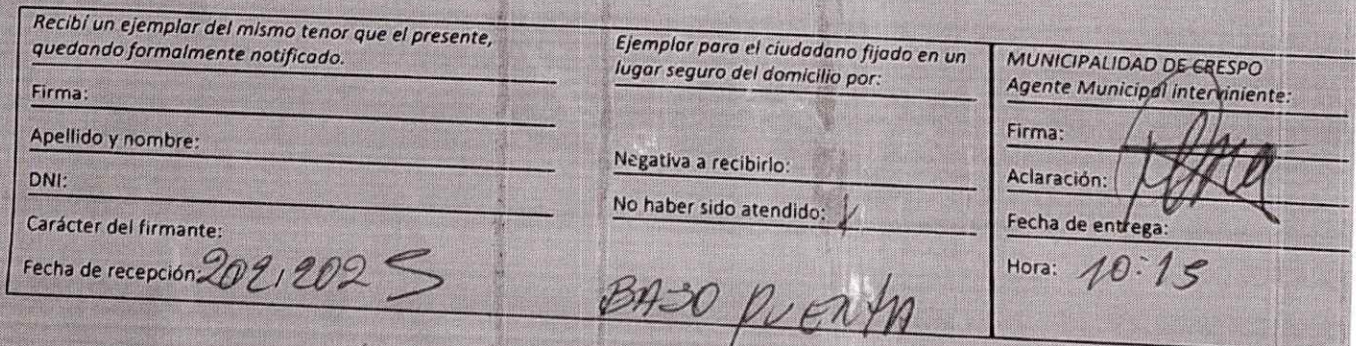 Recibí un ejemplar del mismo tenor que el presente,
quedando formalmente notificado.
Firma:
Apellido y nombre:
DNI:
Carácter del firmante:
Fecha de recepción:
Ejemplar para el ciudadano fijado en un
lugar seguro del domicilio por:
Negativa a recibirlo:
No haber sido atendido:
BAJO PUENTA
MUNICIPALIDAD DE CRESPO
Agente Municipal interviniente:
Firma:
Aclaración:
Fecha de entrega:
Hora: 10:15